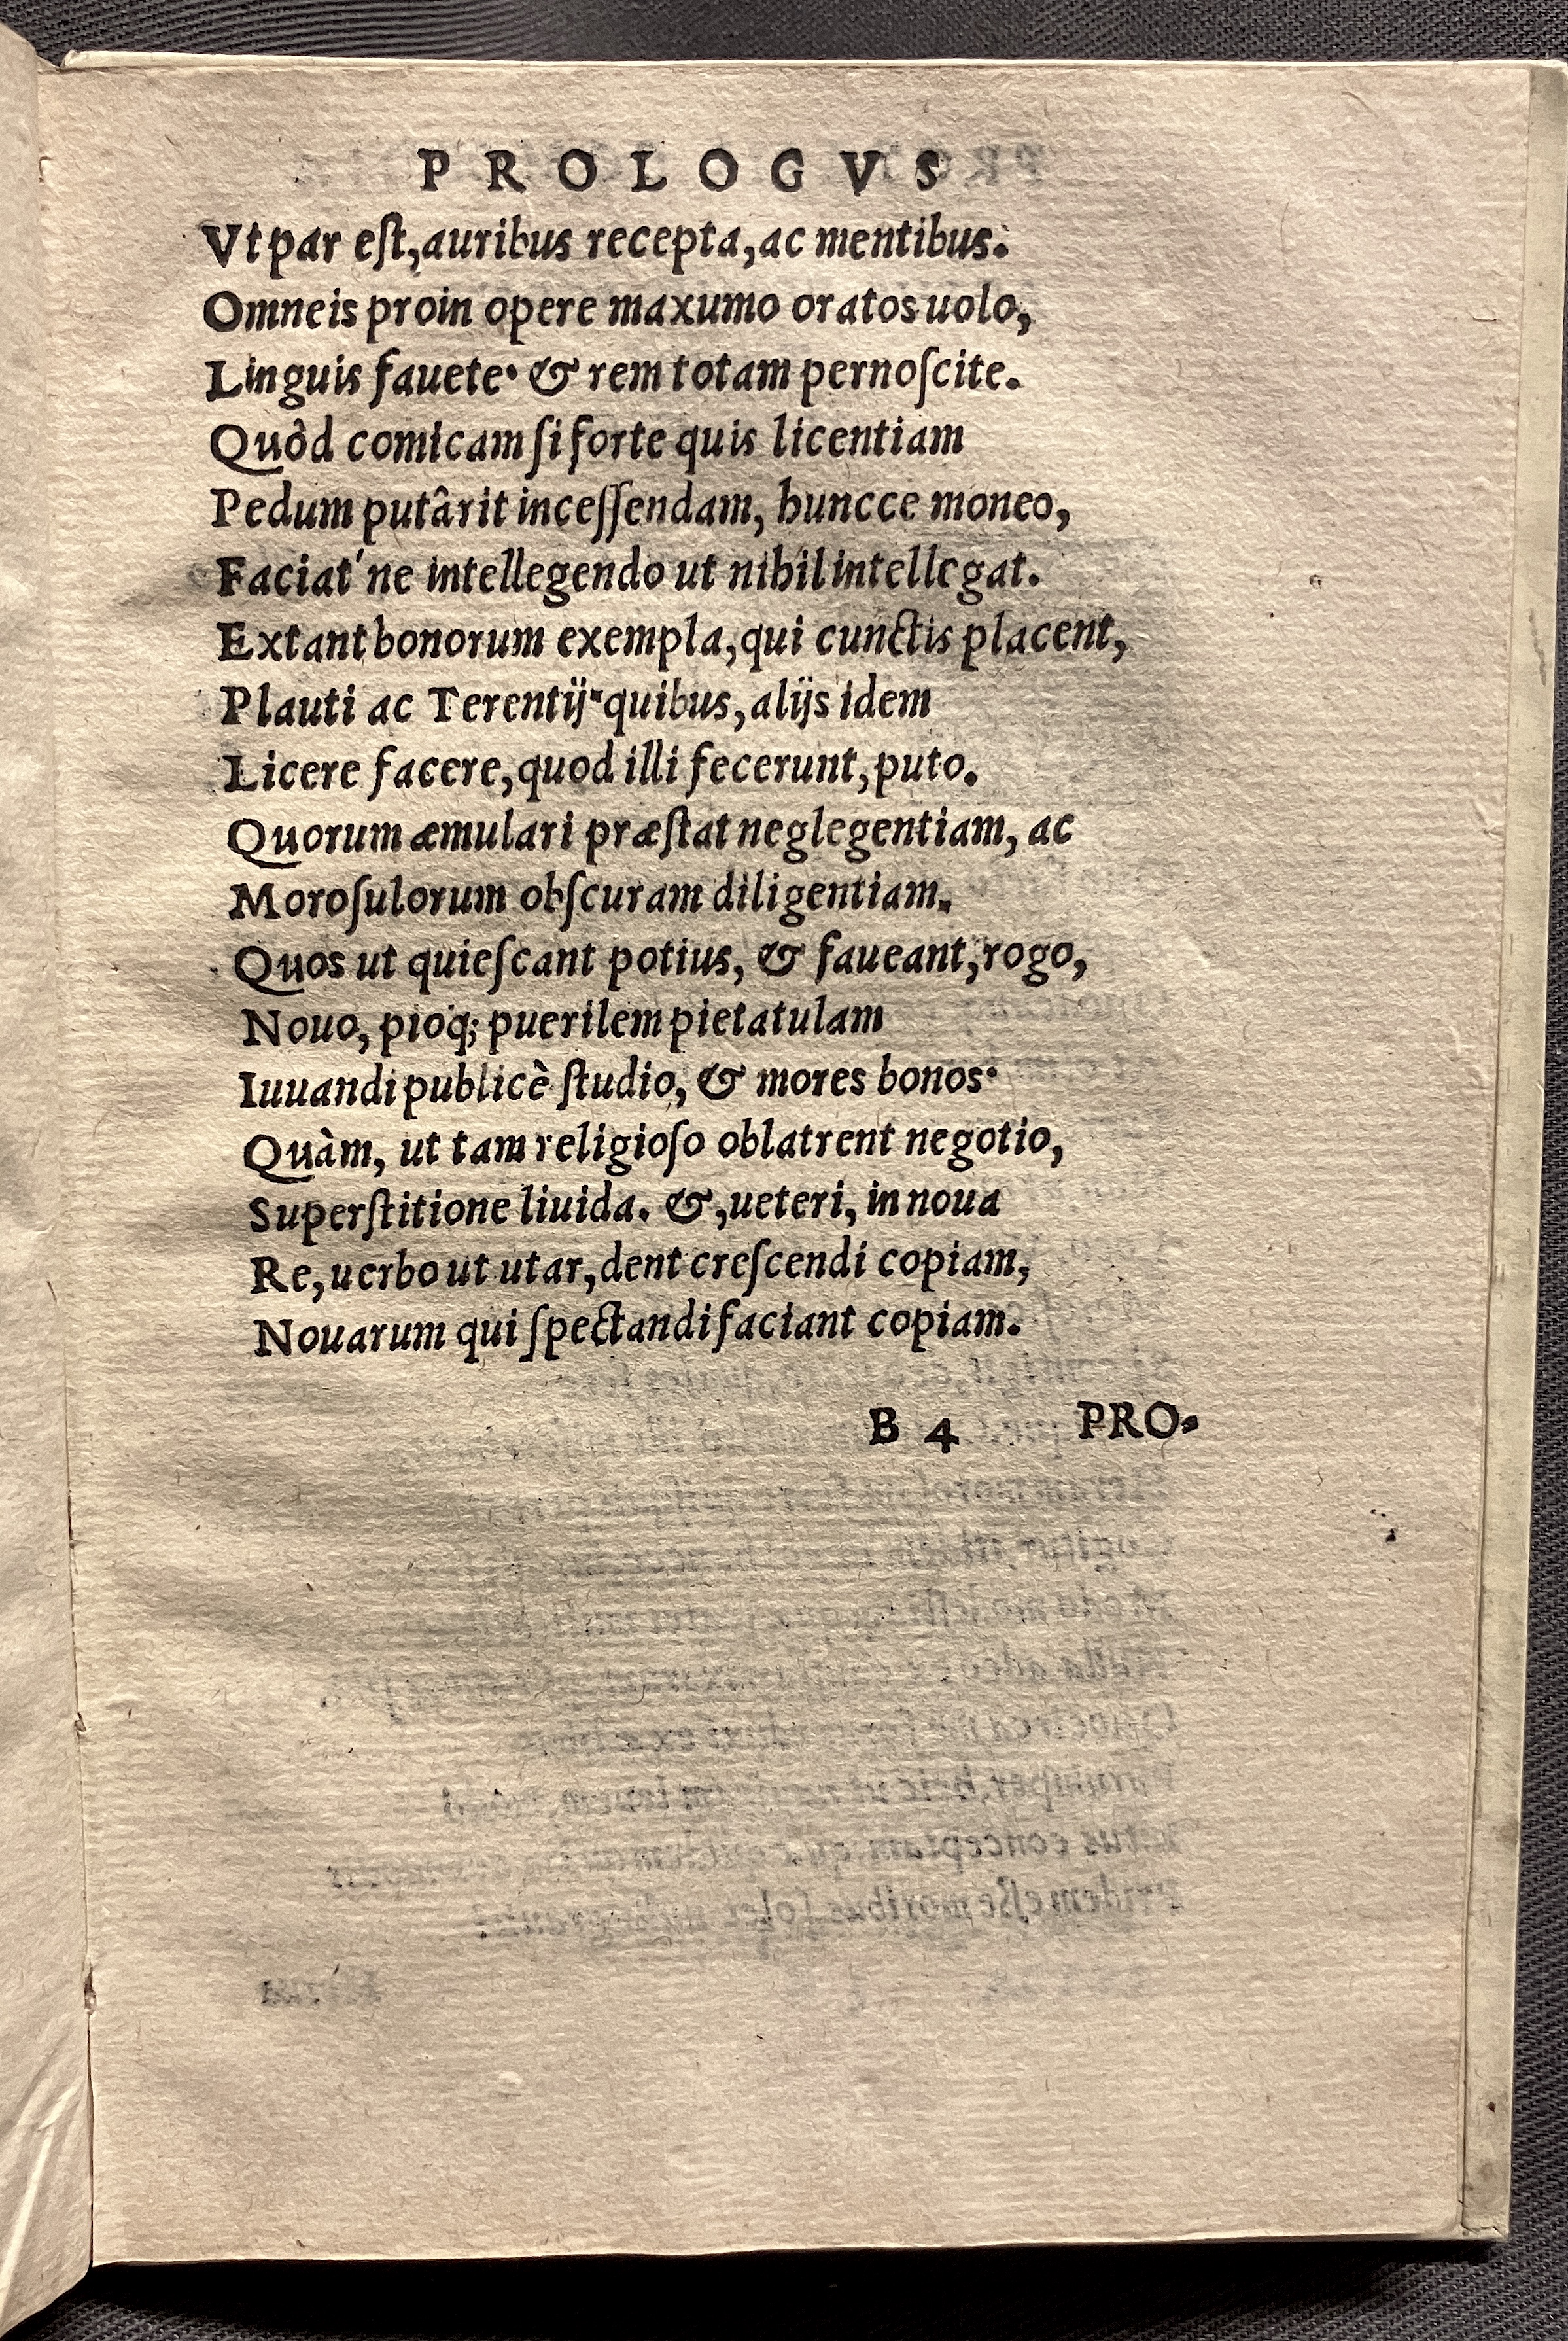 PROLOGVS
Vt par eſt, auribus recepta, ac mentibus:
Omneis proin opere maxumo oratos uolo,
Linguis fauete· & rem totam pernoſcite.
Quòd comicam ſi forte quis licentiam
Pedum putârit inceſſendam, huncce moneo,
Faciat' ne intellegendo ut nihil intellegat.
Extant bonorum exempla, qui cunctis placent,
Plauti ac Terentij· quibus, alijs idem
Licere facere, quod illi fecerunt, puto.
Quorum æmulari præſtat neglegentiam, ac
Moroſulorum obſcuram diligentiam.
Quos ut quieſcant potius, & faueant, rogo,
Nouo, pioq; puerilem pietatulam
Iuuandi publicè ſtudio, & mores bonos·
Quàm, ut tam religioſo oblatrent negotio,
Superſtitione liuida. &, ueteri, in noua
Re, uerbo ut utar, dent creſcendi copiam,
Nouarum qui ſpectandi faciant copiam.
B 4 PRO-